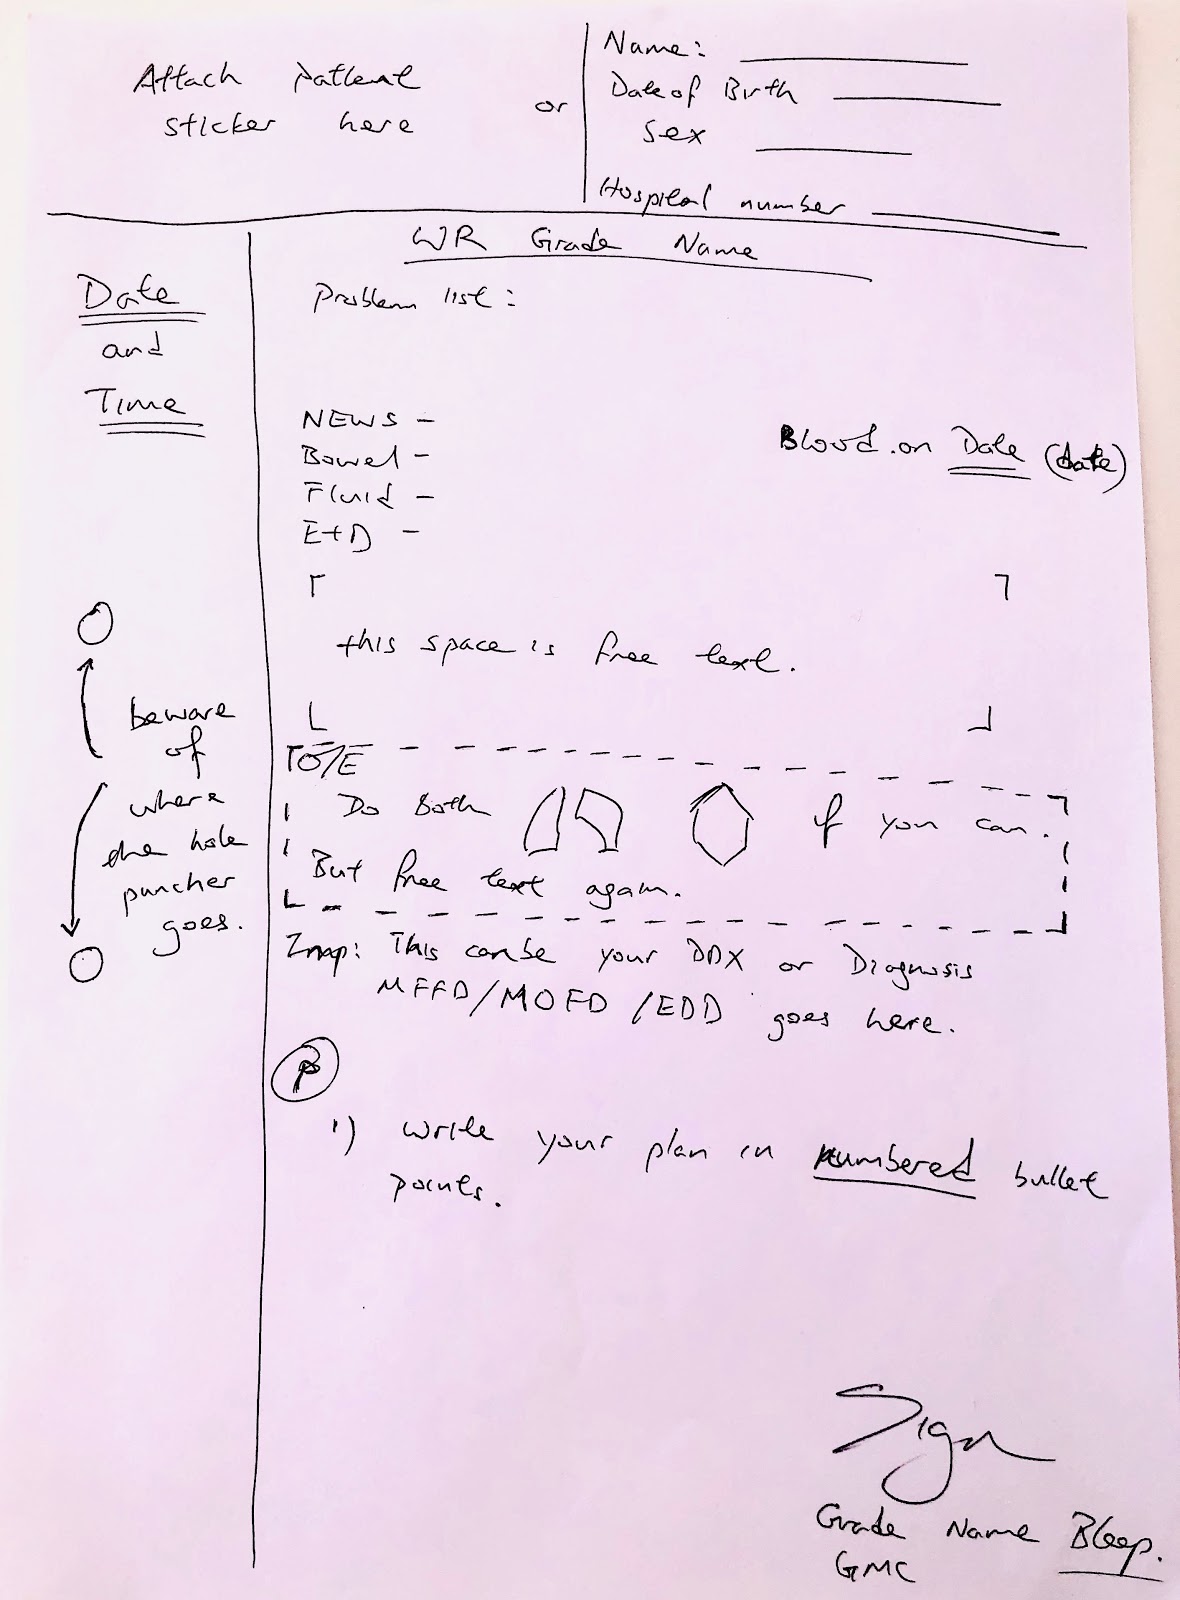 Attach patient
sticker here
or
Name:
Date of Birth
Sex
Hospital number
WR Grade Name
Date
and
Time
Problem list:
NEWS -
Bowel -
Fluid -
E+D -
Blood on Date (date)
this space is free text.
beware
of
where
the hole
puncher
goes.
O/E
Do Both if you can.
But free text again.
Imp: This can be your DDX or Diagnosis
MFFD/MOFD/EDD goes here.
P
1) Write your plan in numbered bullet
points.
Sign
Grade Name Bleep.
GMC